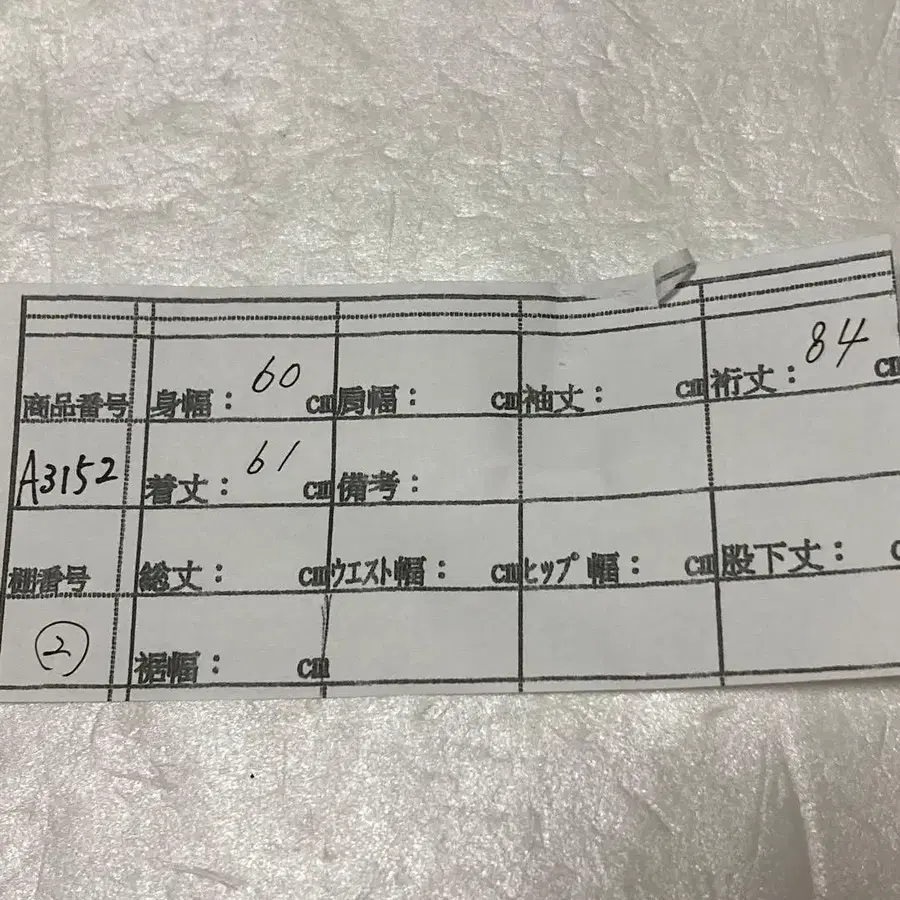 商品番号 身幅： 60 cm 肩幅： cm 袖丈： cm 裄丈： 84 cm
A3152 着丈： 61 cm 備考：
棚番号 総丈： cm ウエスト幅： cm ヒップ幅： cm 股下丈： c
② 裾幅： cm